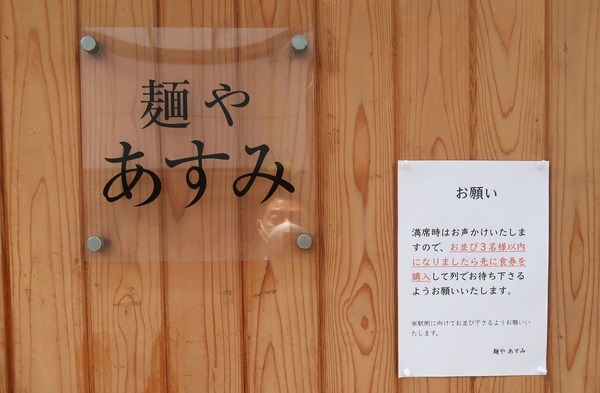 麺や
あすみ
お願い
満席時はお声かけいたしま
すので、お並び３名様以内
になりましたら先に食券を
購入して列でお待ち下さる
ようお願いいたします。
※駅側に向けてお並び下さるようお願いい
たします。
麺や あすみ